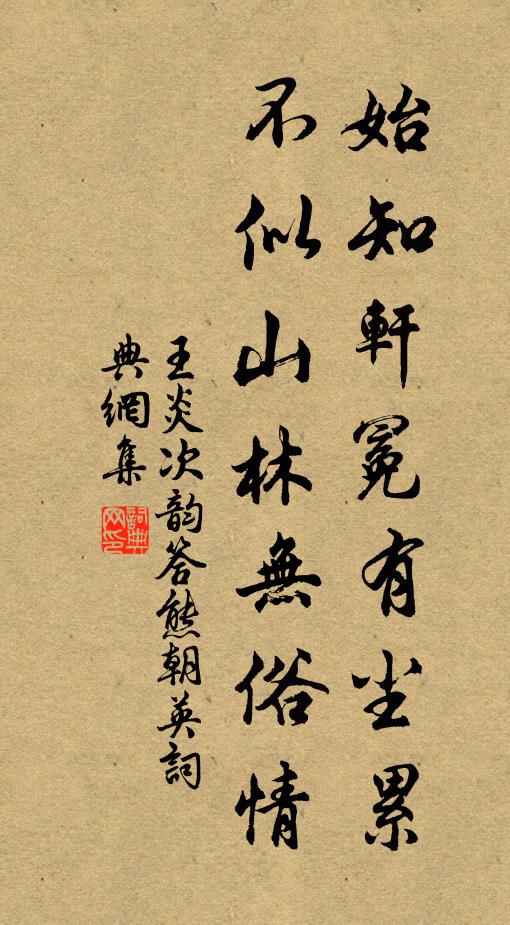 始知軒冕有尘累
不似山林無俗情
王炎次韵答熊朝英詞
典網集
詞典
网印